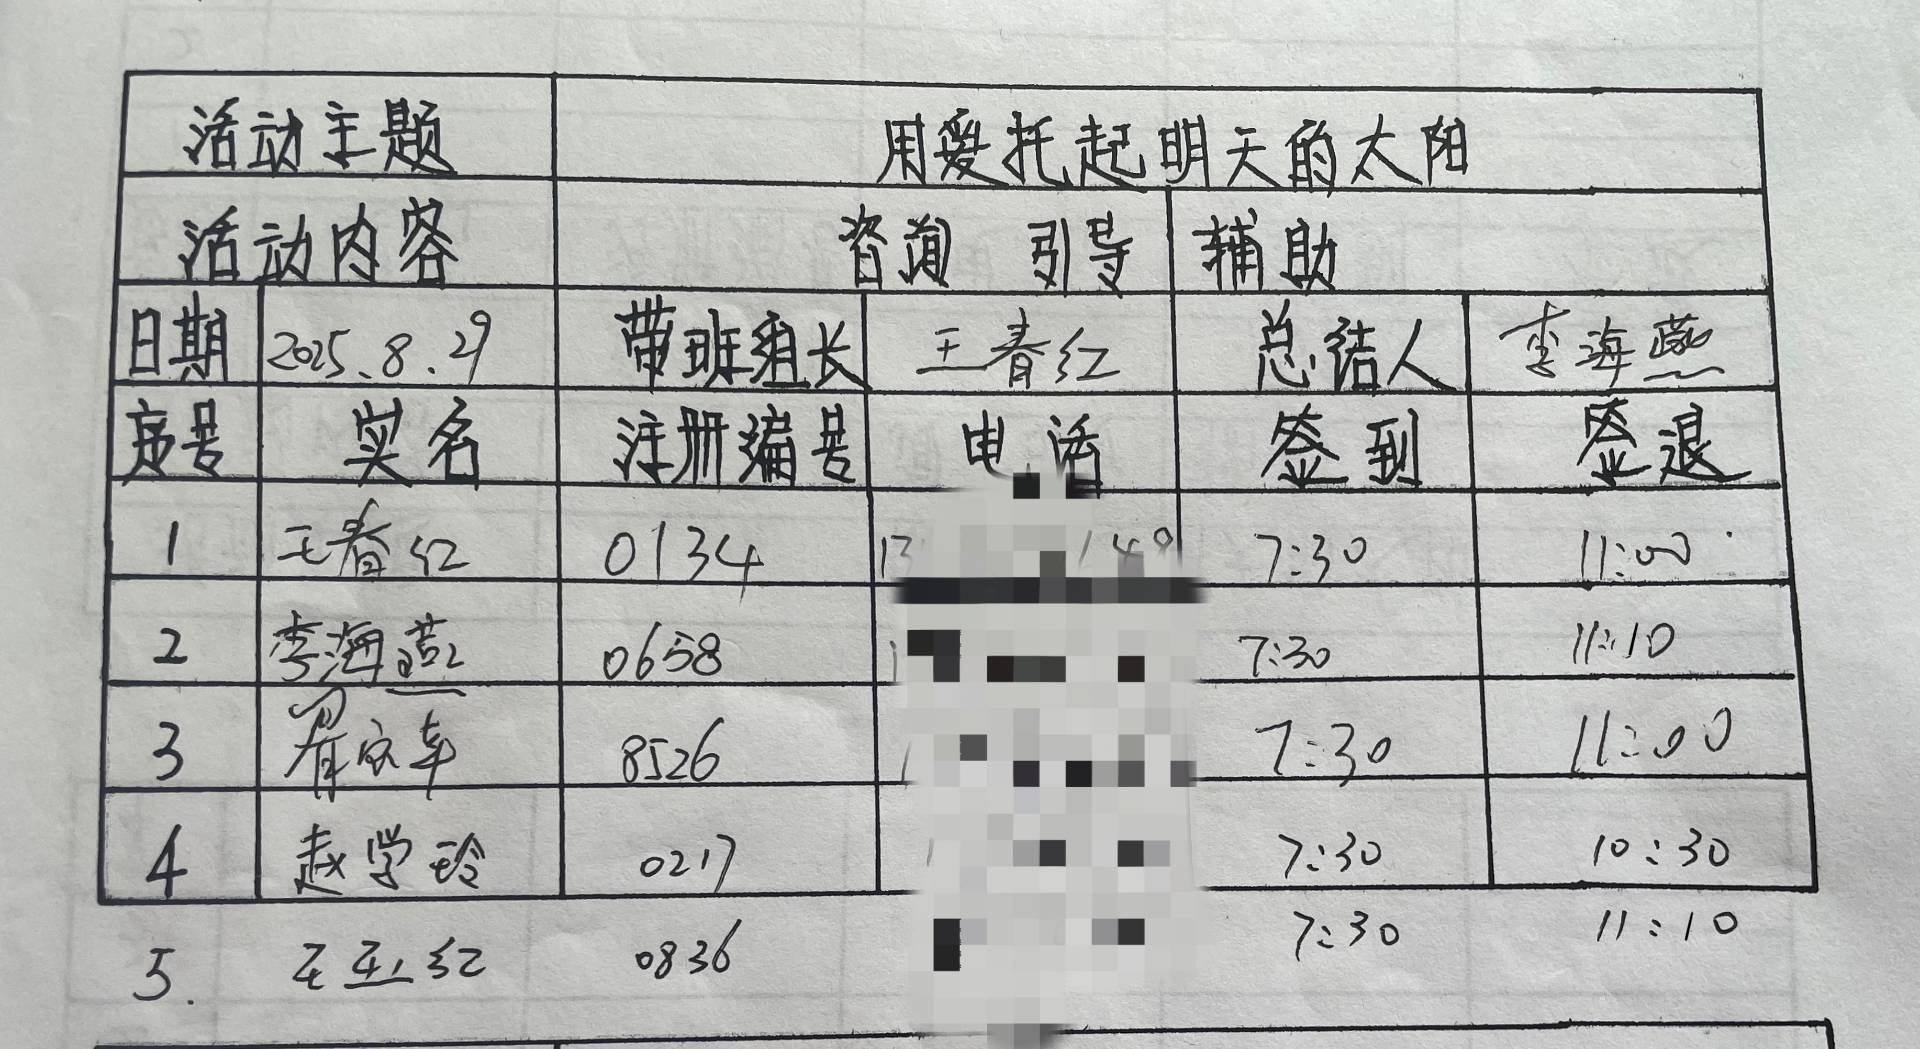 活动主题 用爱托起明天的太阳
活动内容 咨询 引导 辅助
日期 2025.8.29 带班组长 王春红 总结人 李海燕
序号 实名 注册编号 电话 签到 签退
1 王春红 0134 13 148 7:30 11:00
2 李海燕 0658 1 7:30 11:10
3 8526 1 7:30 11:00
4 赵学玲 0217 1 7:30 10:30
5. 王玉红 0836 7:30 11:10